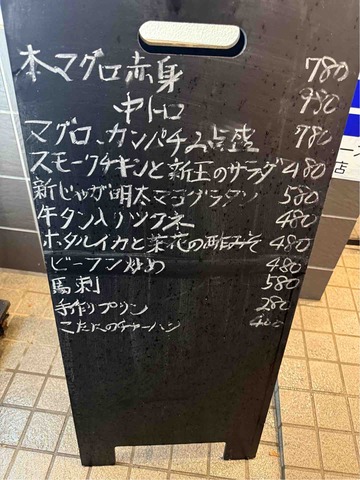 本マグロ赤身 780
中トロ 980
マグロ、カンパチ2点盛 780
スモークチキンと新玉のサラダ 480
新じゃが明太マヨグラタン 580
牛タン入りツクネ 480
ホタルイカと菜花の酢みそ 480
ビーフン炒め 480
馬刺 580
手作りプリン 280
こだわりのチャーハン 400
ース
店